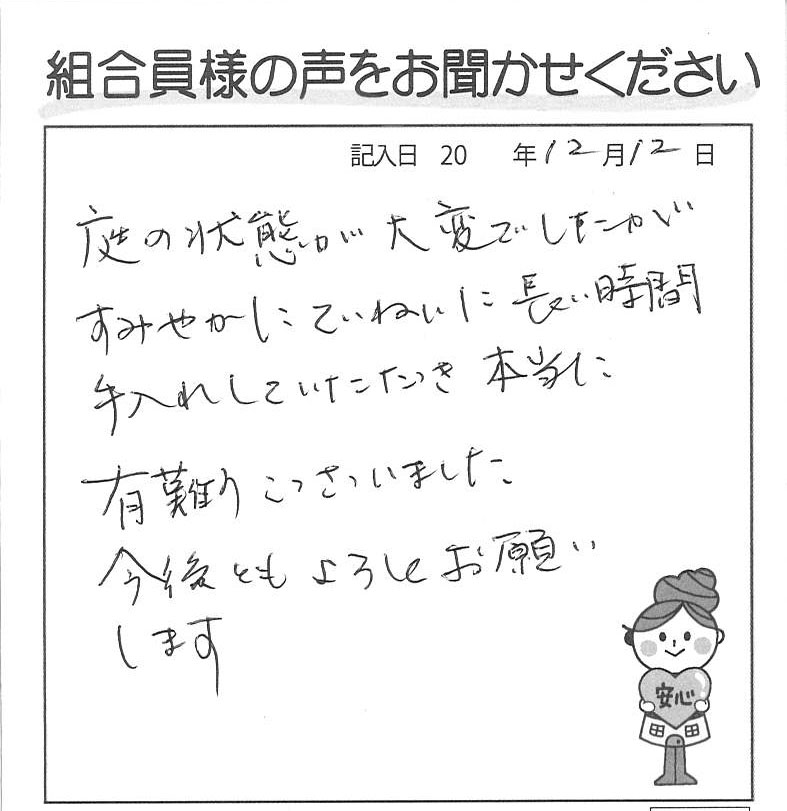 組合員様の声をお聞かせください
記入日 20 年12月12日
庭の状態が大変でしたが
すみやかにていねいに長い時間
手入れしていただき本当に
有難うございました
今後ともよろしくお願い
します
安心